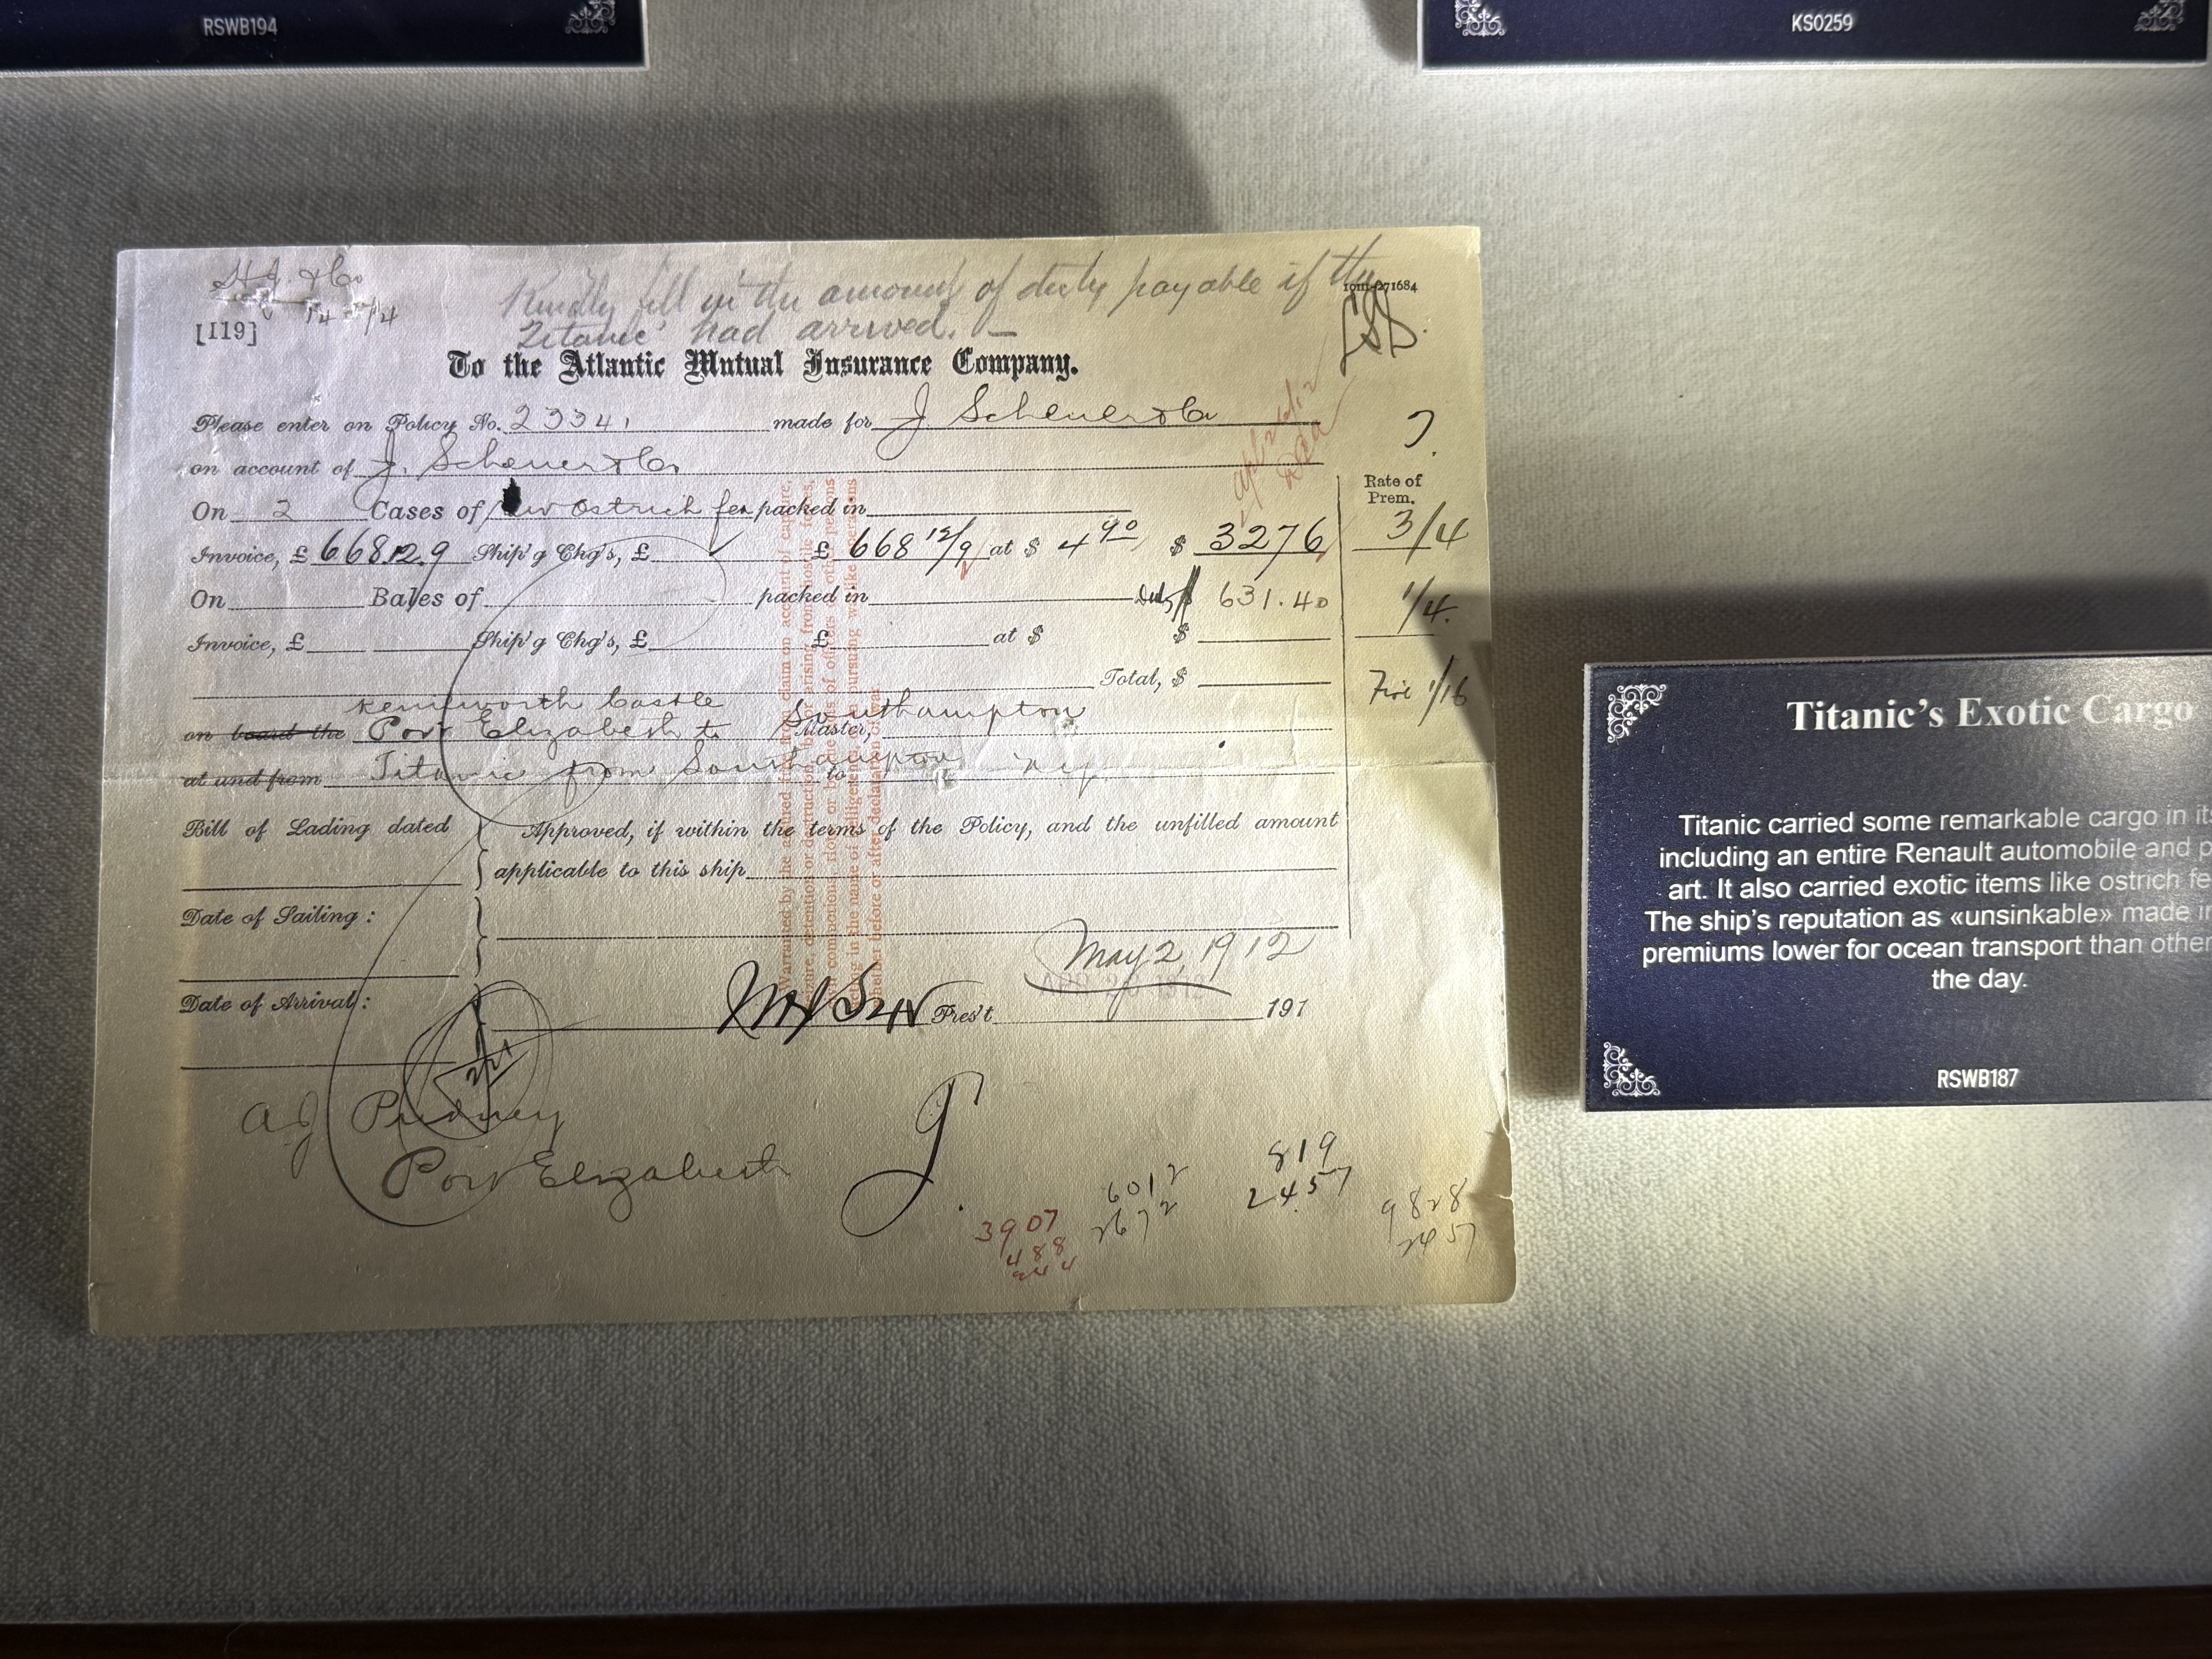 RSWB194
KS0259
H.J. & Co
14 7/4
Kindly fill in the amount of duty payable if the
10m-271684
'Titanic' had arrived. —
[119]
To the Atlantic Mutual Insurance Company.
Please enter on Policy No. 23341 made for J Scheuer & Co
on account of J. Scheuer & Co.
Rate of
Prem.
On 2 Cases of Ostrich fea packed in
Invoice, £ 668.12.9 Ship'g Chg's, £ £ 668 12/9 at $ 4 90 $ 3276 3/4
On Bales of packed in Duty $ 631.40 1/4.
Invoice, £ Ship'g Chg's, £ £ at $ $
Total, $ Fire 1/16
Kenilworth Castle
on board the Port Elizabeth to Southampton Master,
at and from Titanic from Southampton to
Bill of Lading dated
Approved, if within the terms of the Policy, and the unfilled amount
applicable to this ship
Date of Sailing :
May 2, 1912
Date of Arrival :
Pres't 191
Warranted by the assured free from claim on account of capture,
seizure, detention or destruction by or arising from hostile forces,
A J Pudney
Port Elizabeth
3907
488
244
6012
2672
819
2457
9828
2457
Titanic's Exotic Cargo
Titanic carried some remarkable cargo in its
including an entire Renault automobile and p
art. It also carried exotic items like ostrich fe
The ship's reputation as «unsinkable» made in
premiums lower for ocean transport than other
the day.
RSWB187